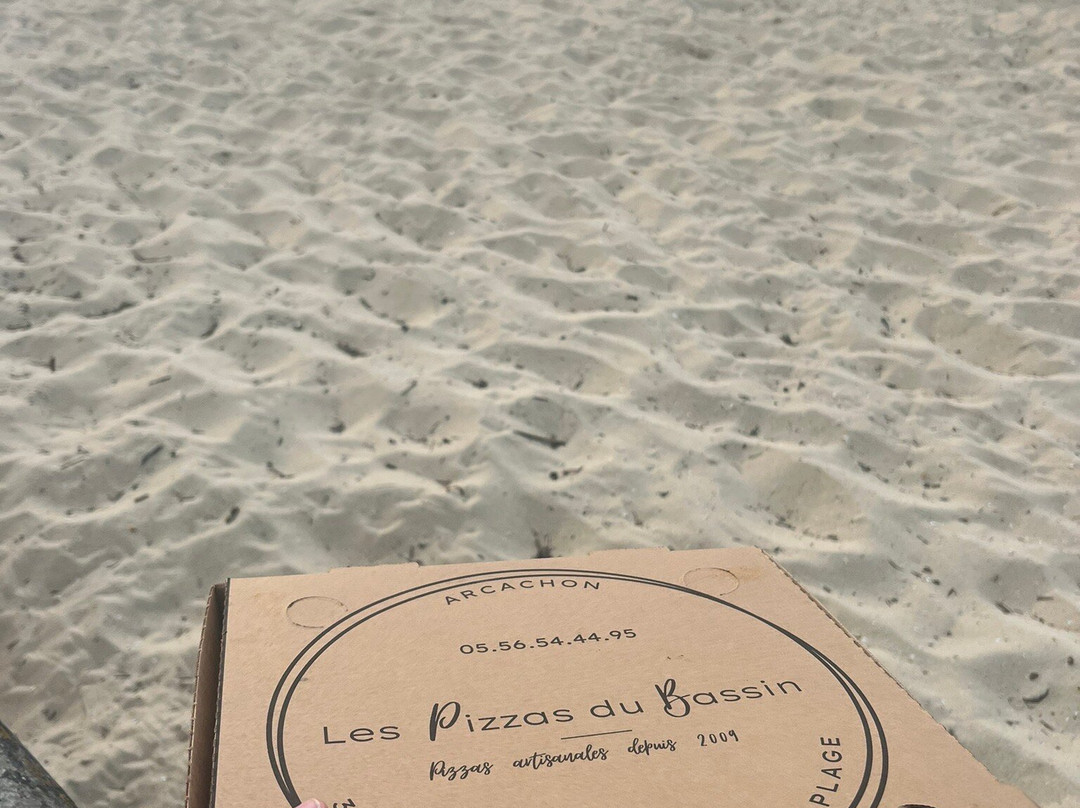 ARCACHON
05.56.54.44.95
Les Pizzas du Bassin
Pizzas artisanales depuis 2009
PLAGE